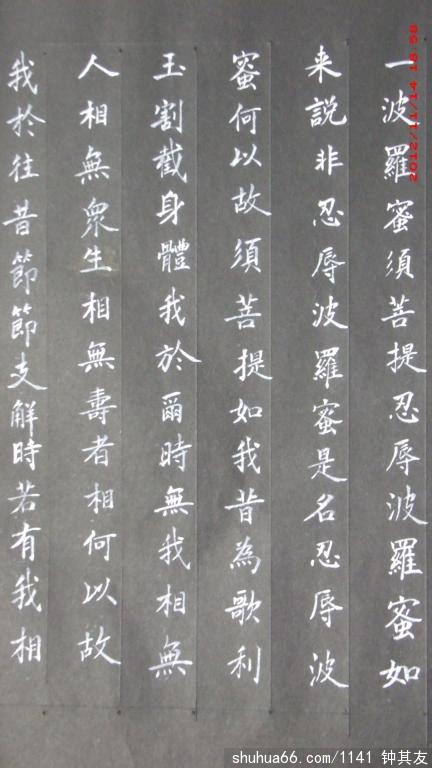 一波羅蜜須菩提忍辱波羅蜜如
来說非忍辱波羅蜜是名忍辱波
蜜何以故須菩提如我昔為歌利
玉割截身體我於爾時無我相無
人相無眾生相無壽者相何以故
我於往昔節節支解時若有我相
2012/11/14 16:58
shuhua66.com/1141 钟其友